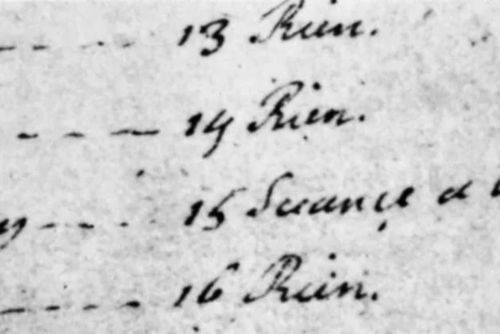 13 Rien.
14 Rien.
15 Séance a
16 Rien.